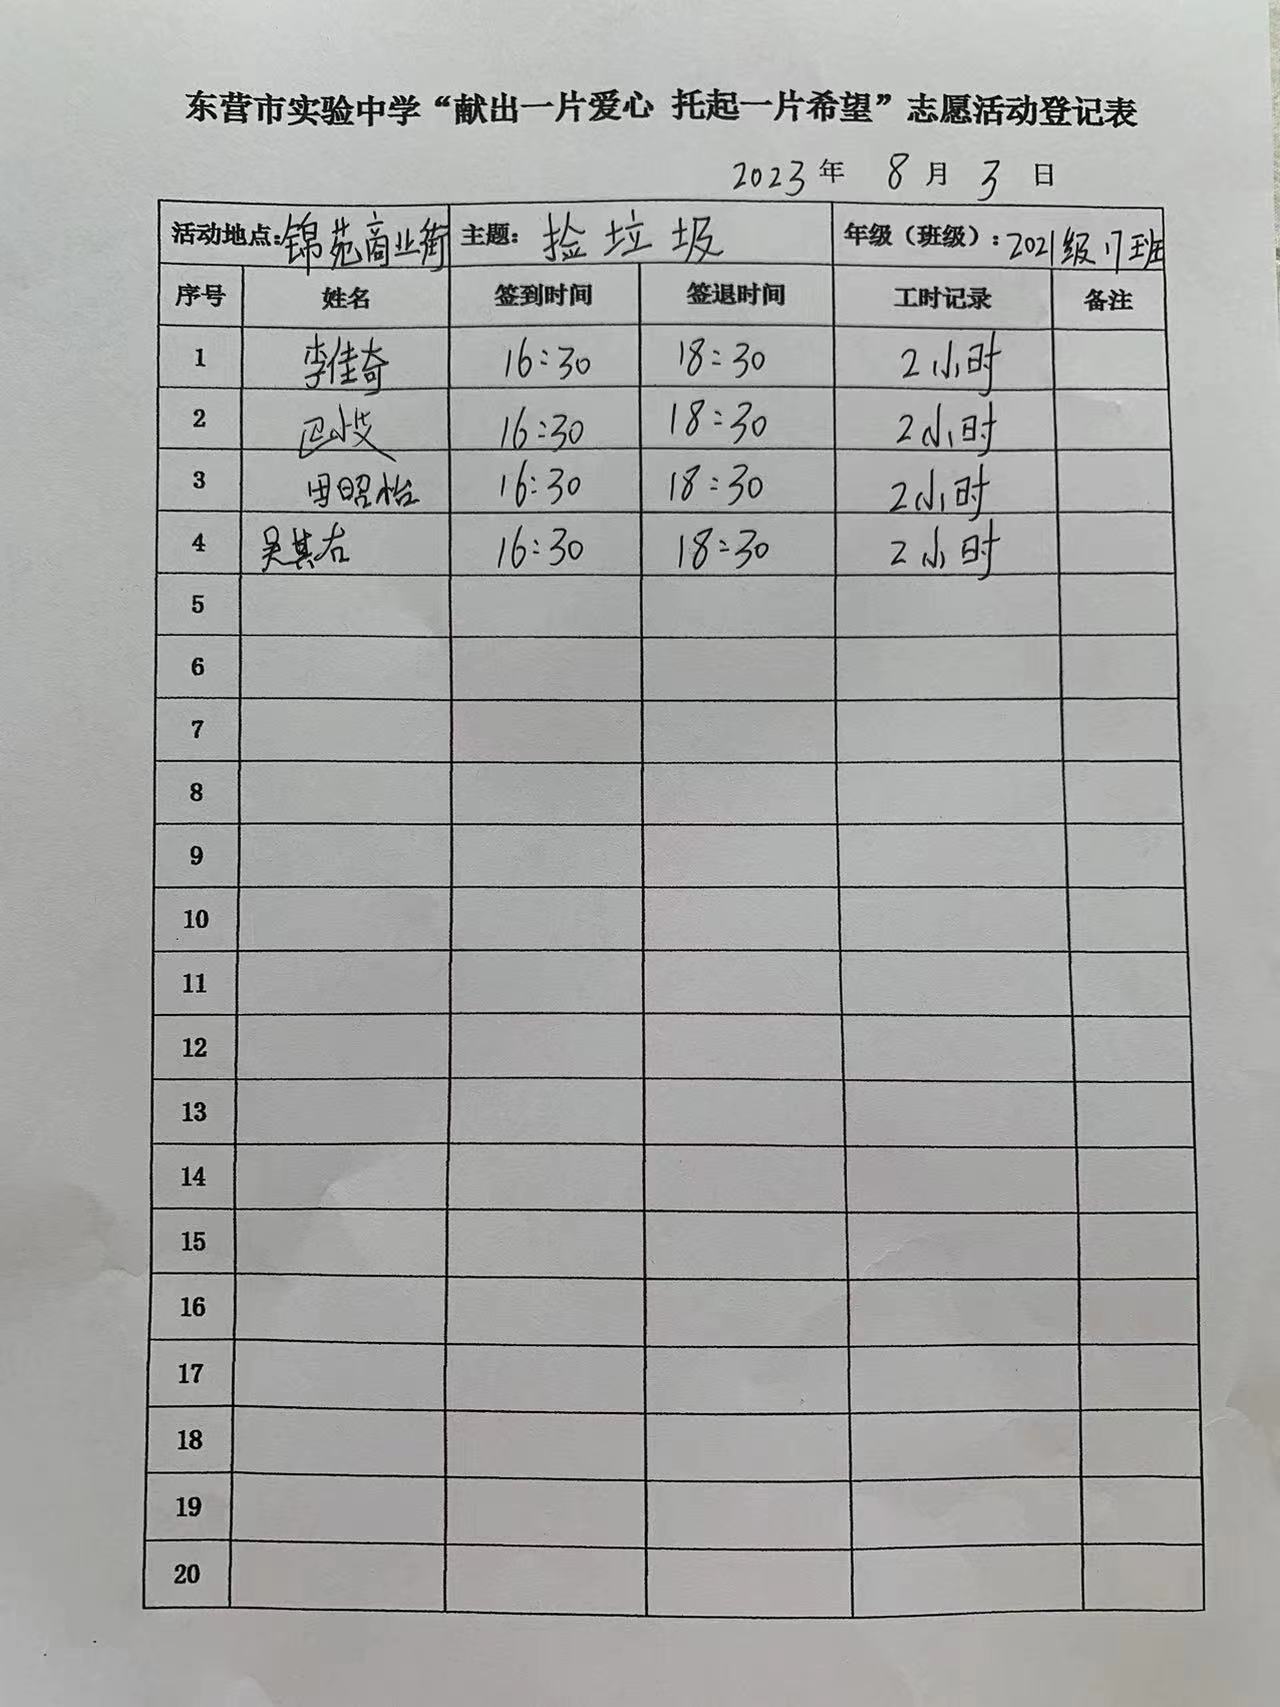 东营市实验中学“献出一片爱心 托起一片希望”志愿活动登记表
2023年 8月 3日
活动地点:锦苑商业街 主题:捡垃圾 年级（班级）:2021级17班
序号 姓名 签到时间 签退时间 工时记录 备注
1 李佳奇 16:30 18:30 2小时
2 16:30 18:30 2小时
3 田昭怡 16:30 18:30 2小时
4 吴其右 16:30 18:30 2小时
5
6
7
8
9
10
11
12
13
14
15
16
17
18
19
20